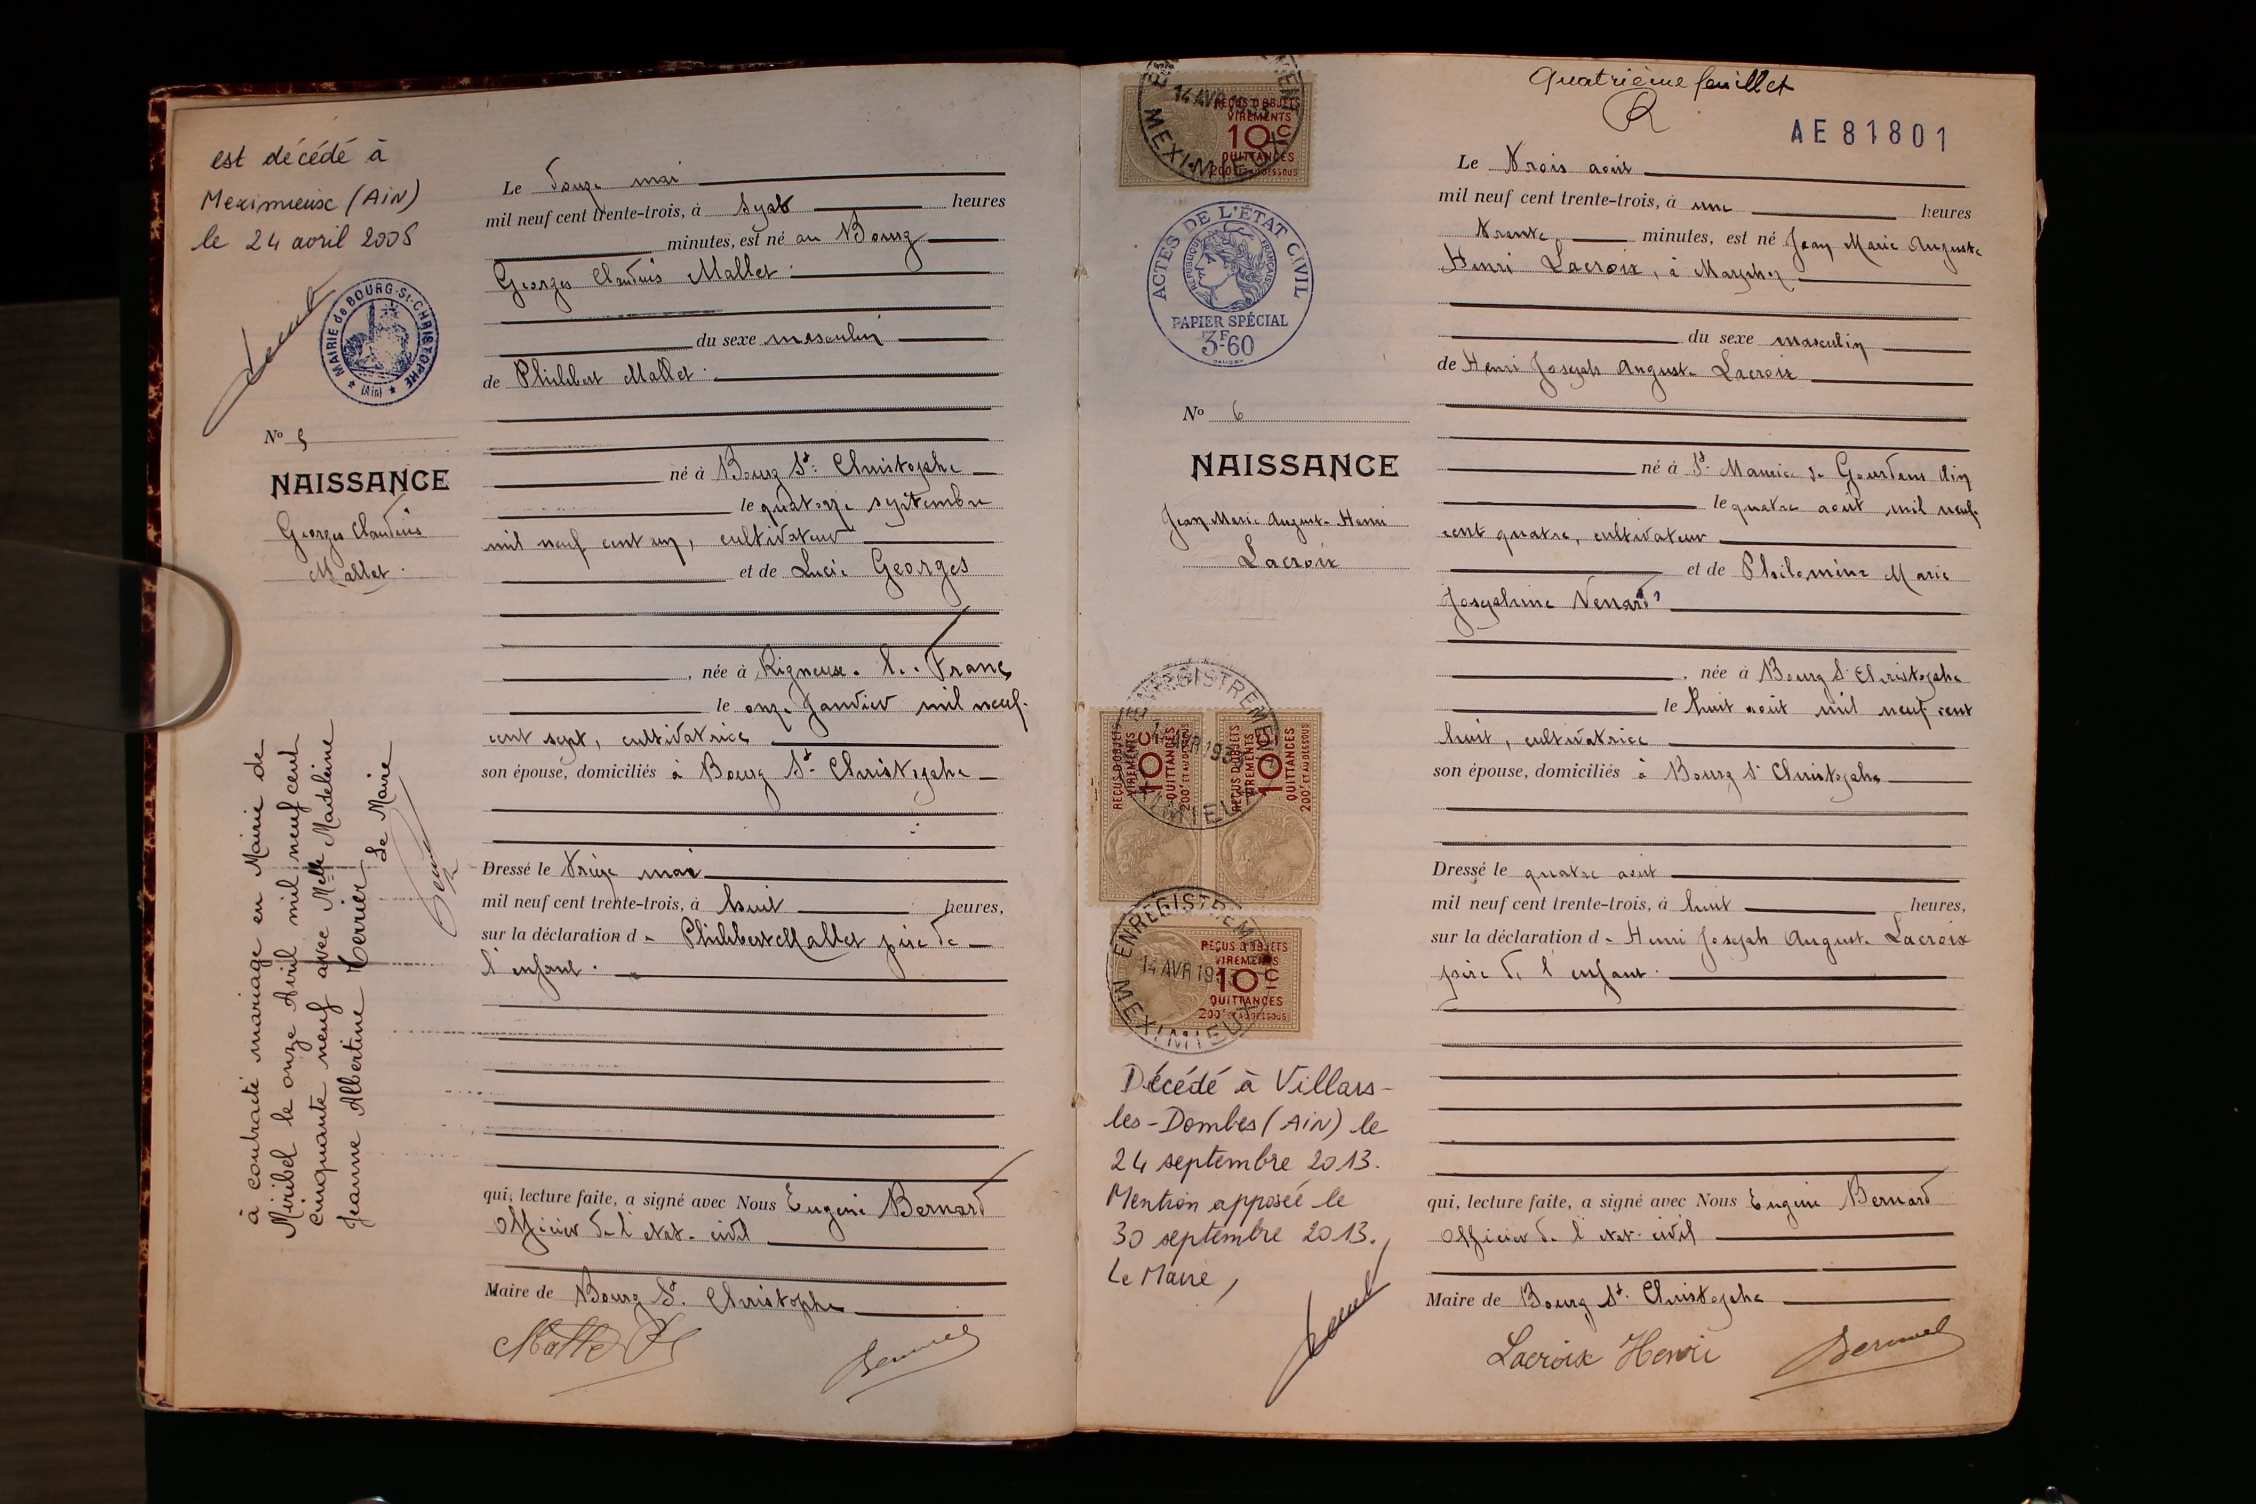 est décédé à
Meximieux (AIN)
le 24 avril 2005
MAIRIE de BOURG-St-CHRISTOPHE
(Ain)
N° 5
NAISSANCE
Georges Claudius
Mallet.
à contracté mariage en Mairie de
Miribel le onze Avril mil neuf cent
cinquante neuf avec Melle Madeleine
Jeanne Albertine Terrier Le Maire
Le douze mai
mil neuf cent trente-trois, à sept heures
minutes, est né au Bourg
Georges Claudius Mallet.
du sexe masculin
de Philibert Mallet.
né à Bourg St. Christophe
le quatorze septembre
mil neuf cent un, cultivateur
et de Lucie Georges
, née à Rigneux le Franc
le onze Janvier mil neuf
cent sept, cultivatrice
son épouse, domiciliés à Bourg St. Christophe
Dressé le treize mai
mil neuf cent trente-trois, à huit heures,
sur la déclaration de Philibert Mallet père de
l'enfant.
qui, lecture faite, a signé avec Nous Eugène Bernard
Officier de l'état civil
Maire de Bourg St. Christophe
Mallet
Quatrième feuillet
AE 81801
14 AVR 193
MEXIMIEUX
REÇUS D'OBJETS
VIREMENTS
10c
QUITTANCES
200f ET AU DESSOUS
ACTES DE L'ÉTAT CIVIL
RÉPUBLIQUE FRANÇAISE
PAPIER SPÉCIAL
3F60
N° 6
NAISSANCE
Jean Marie Auguste Henri
Lacroix
ENREGISTREMENT
REÇUS D'OBJETS
VIREMENTS
10c
QUITTANCES
200f ET AU DESSOUS
REÇUS D'OBJETS
VIREMENTS
10c
QUITTANCES
200f ET AU DESSOUS
ENREGISTREM
14 AVR 193
MEXIMIEUX
REÇUS D'OBJETS
VIREMENTS
10c
QUITTANCES
200f ET AU DESSOUS
Décédé à Villars-
les-Dombes (AIN) le
24 septembre 2013.
Mention apposée le
30 septembre 2013.
Le Maire,
Le trois août
mil neuf cent trente-trois, à une heures
trente minutes, est né Jean Marie Auguste
Henri Lacroix, à
du sexe masculin
de Henri Joseph Auguste Lacroix
né à St. Maurice de Gourdans Ain
le quatre août mil neuf
cent quatre, cultivateur
et de Philomine Marie
Josephine Venard
, née à Bourg St Christophe
le huit août mil neuf cent
huit, cultivatrice
son épouse, domiciliés à Bourg St Christophe
Dressé le quatre août
mil neuf cent trente-trois, à huit heures,
sur la déclaration de Henri Joseph Auguste Lacroix
père de l'enfant.
qui, lecture faite, a signé avec Nous Eugène Bernard
Officier de l'état civil
Maire de Bourg St. Christophe
Lacroix Henri